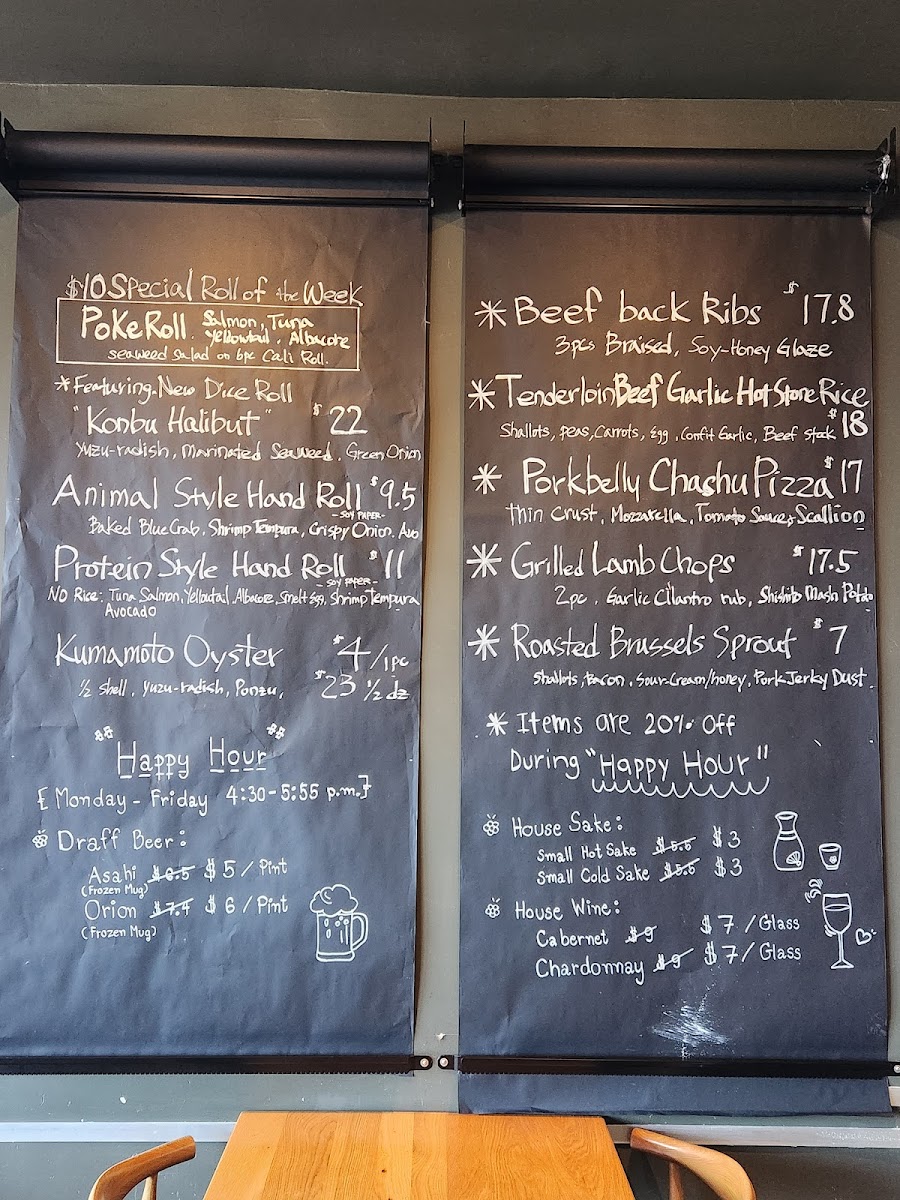 $10 Special Roll of the Week
Poke Roll. Salmon, Tuna
Yellowtail, Albacore
seaweed salad on 6pc Cali Roll.
*Featuring. New Dice Roll
"Konbu Halibut" $22
Yuzu-radish, Marinated Seaweed, Green Onion
Animal Style Hand Roll $9.5
-SOY PAPER-
Baked Blue Crab, Shrimp Tempura, Crispy Onion, Avo
Protein Style Hand Roll $11
-SOY PAPER-
NO Rice: Tuna Salmon, Yellowtail, Albacore, Smelt Egg, Shrimp Tempura
Avocado
Kumamoto Oyster $4/1pc
½ shell, Yuzu-radish, Ponzu, $23 ½ dz
"Happy Hour"
[Monday - Friday 4:30-5:55 p.m.]
Draff Beer:
Asahi $6.5 $5/Pint
(Frozen Mug)
Orion $7.4 $6/Pint
(Frozen Mug)
* Beef back Ribs $17.8
3pcs Braised, Soy-Honey Glaze
* Tenderloin Beef Garlic Hot Stone Rice
$18
Shallots, peas, Carrots, Egg, Confit Garlic, Beef stock
* Porkbelly Chashu Pizza $17
thin crust, Mozzarella, Tomato Sauce, Scallion
* Grilled Lamb Chops $17.5
2pc. Garlic Cilantro rub, Shishito Mash Potato
* Roasted Brussels Sprout $7
Shallots, Bacon, Sour-Cream/honey, Pork Jerky Dust.
* Items are 20% Off
During "Happy Hour"
House Sake:
Small Hot Sake $5.6 $3
Small Cold Sake $5.6 $3
House Wine:
Cabernet $9 $7/Glass
Chardonnay $9 $7/Glass